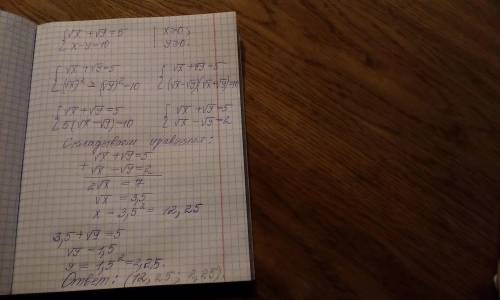 {√x + √y = 5 { x ≥ 0;
{x - y = 10 { y ≥ 0.
{√x + √y = 5 {√x + √y = 5
{(√x)² - (√y)² = 10 {(√x - √y)(√x + √y) = 10
{√x + √y = 5 {√x + √y = 5
{5(√x - √y) = 10 {√x - √y = 2
Складываем уравнения:
√x + √y = 5
+
√x - √y = 2
2√x = 7
√x = 3,5
x = 3,5² = 12,25
3,5 + √y = 5
√y = 1,5
y = 1,5² = 2,25.
Ответ: (12,25; 2,25).